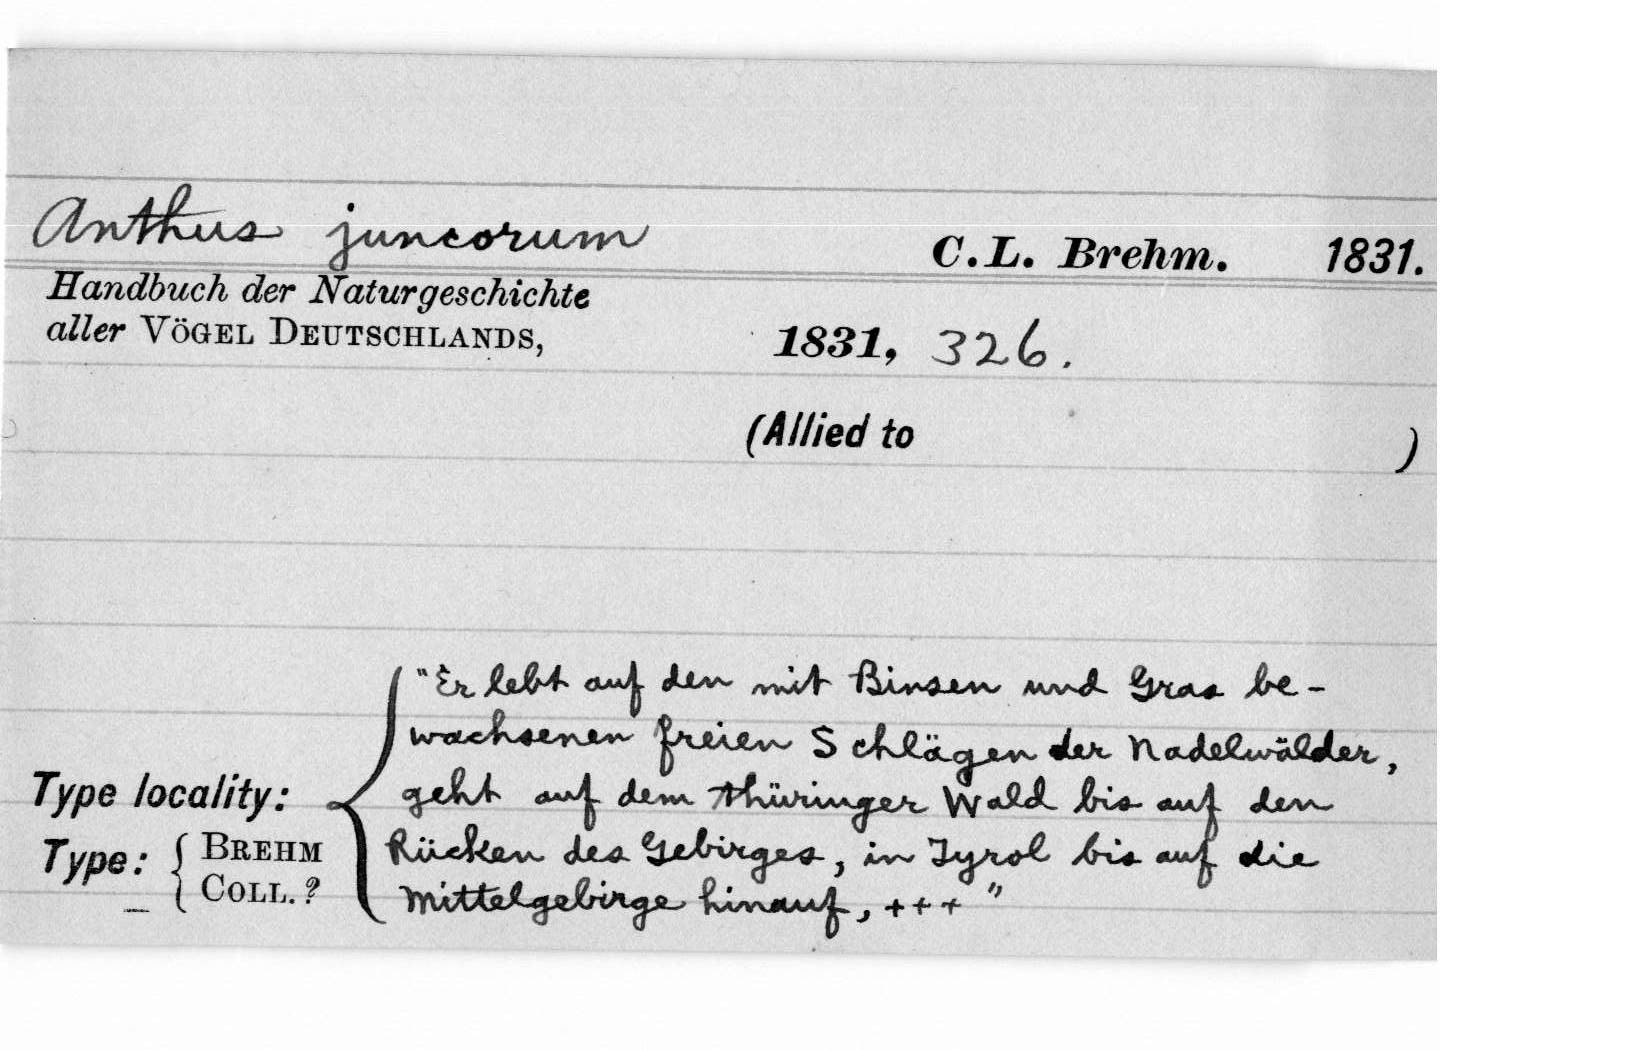 Anthus juncorum C.L. Brehm. 1831.
Handbuch der Naturgeschichte
aller VÖGEL DEUTSCHLANDS, 1831, 326.
(Allied to )
"Er lebt auf den mit Binsen und Gras be-
wachsenen freien Schlägen der Nadelwälder,
Type locality: geht auf dem Thüringer Wald bis auf den
Type: { BREHM COLL. ? Rücken des Gebirges, in Tyrol bis auf die
Mittelgebirge hinauf, +++"